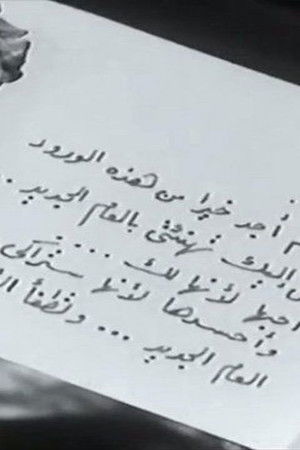 م أجد خيرا من هذه الورود
إليك تهنئتى بالعام الجديد ..
احبها لأنها لك ....
وأحسدها لأنها ستراكى
العام الجديد ... وتطفأ